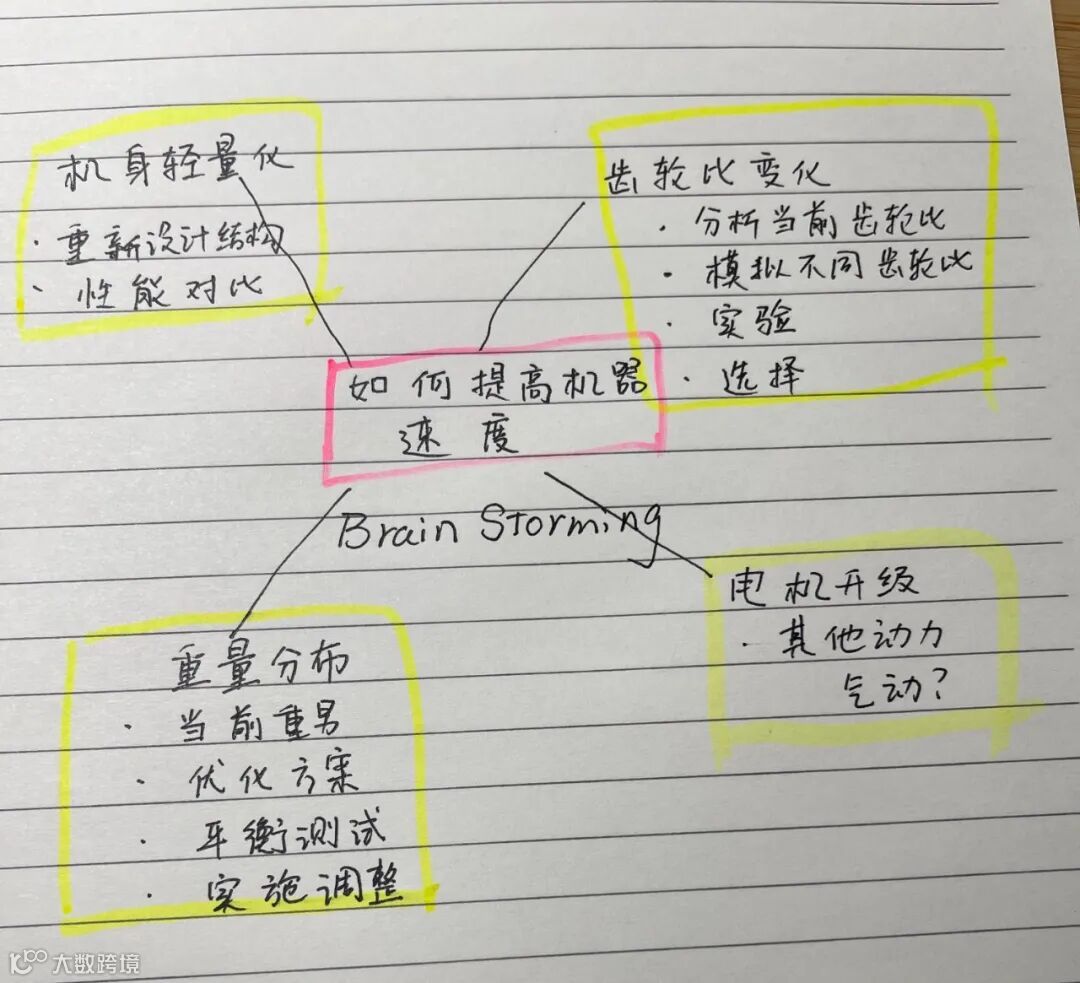 机身轻量化
· 重新设计结构
· 性能对比
齿轮比变化
· 分析当前齿轮比
· 模拟不同齿轮比
· 实验
· 选择
如何提高机器
速度
Brain Storming
电机升级
· 其他动力
气动?
重量分布
· 当前重
· 优化方案
· 平衡测试
· 实施调整
大数跨境